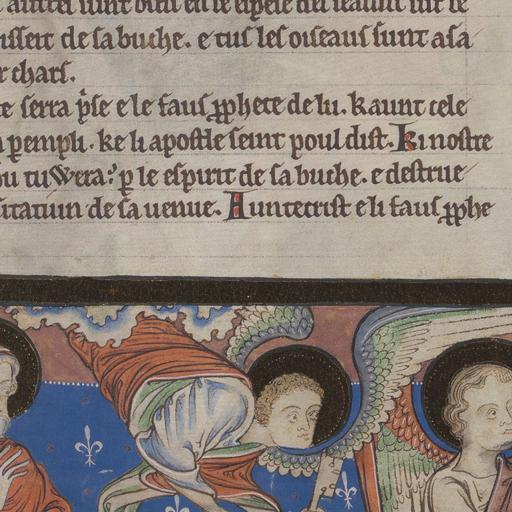 sunt ocis en le espeie del seaunt sur le
isseit de sa buche. e tus les oiseaus sunt asa
r chars.
te serra pͥse e le faus ꝓphete de lu. kaunt cele
a ꝑempli. ke li apostle seint poul dist. Ki nostre
ou tuwera: ꝑ le espirit de sa buche. e destrue
sitatiun de sa uenue. Auntecrist e li faus ꝓphe